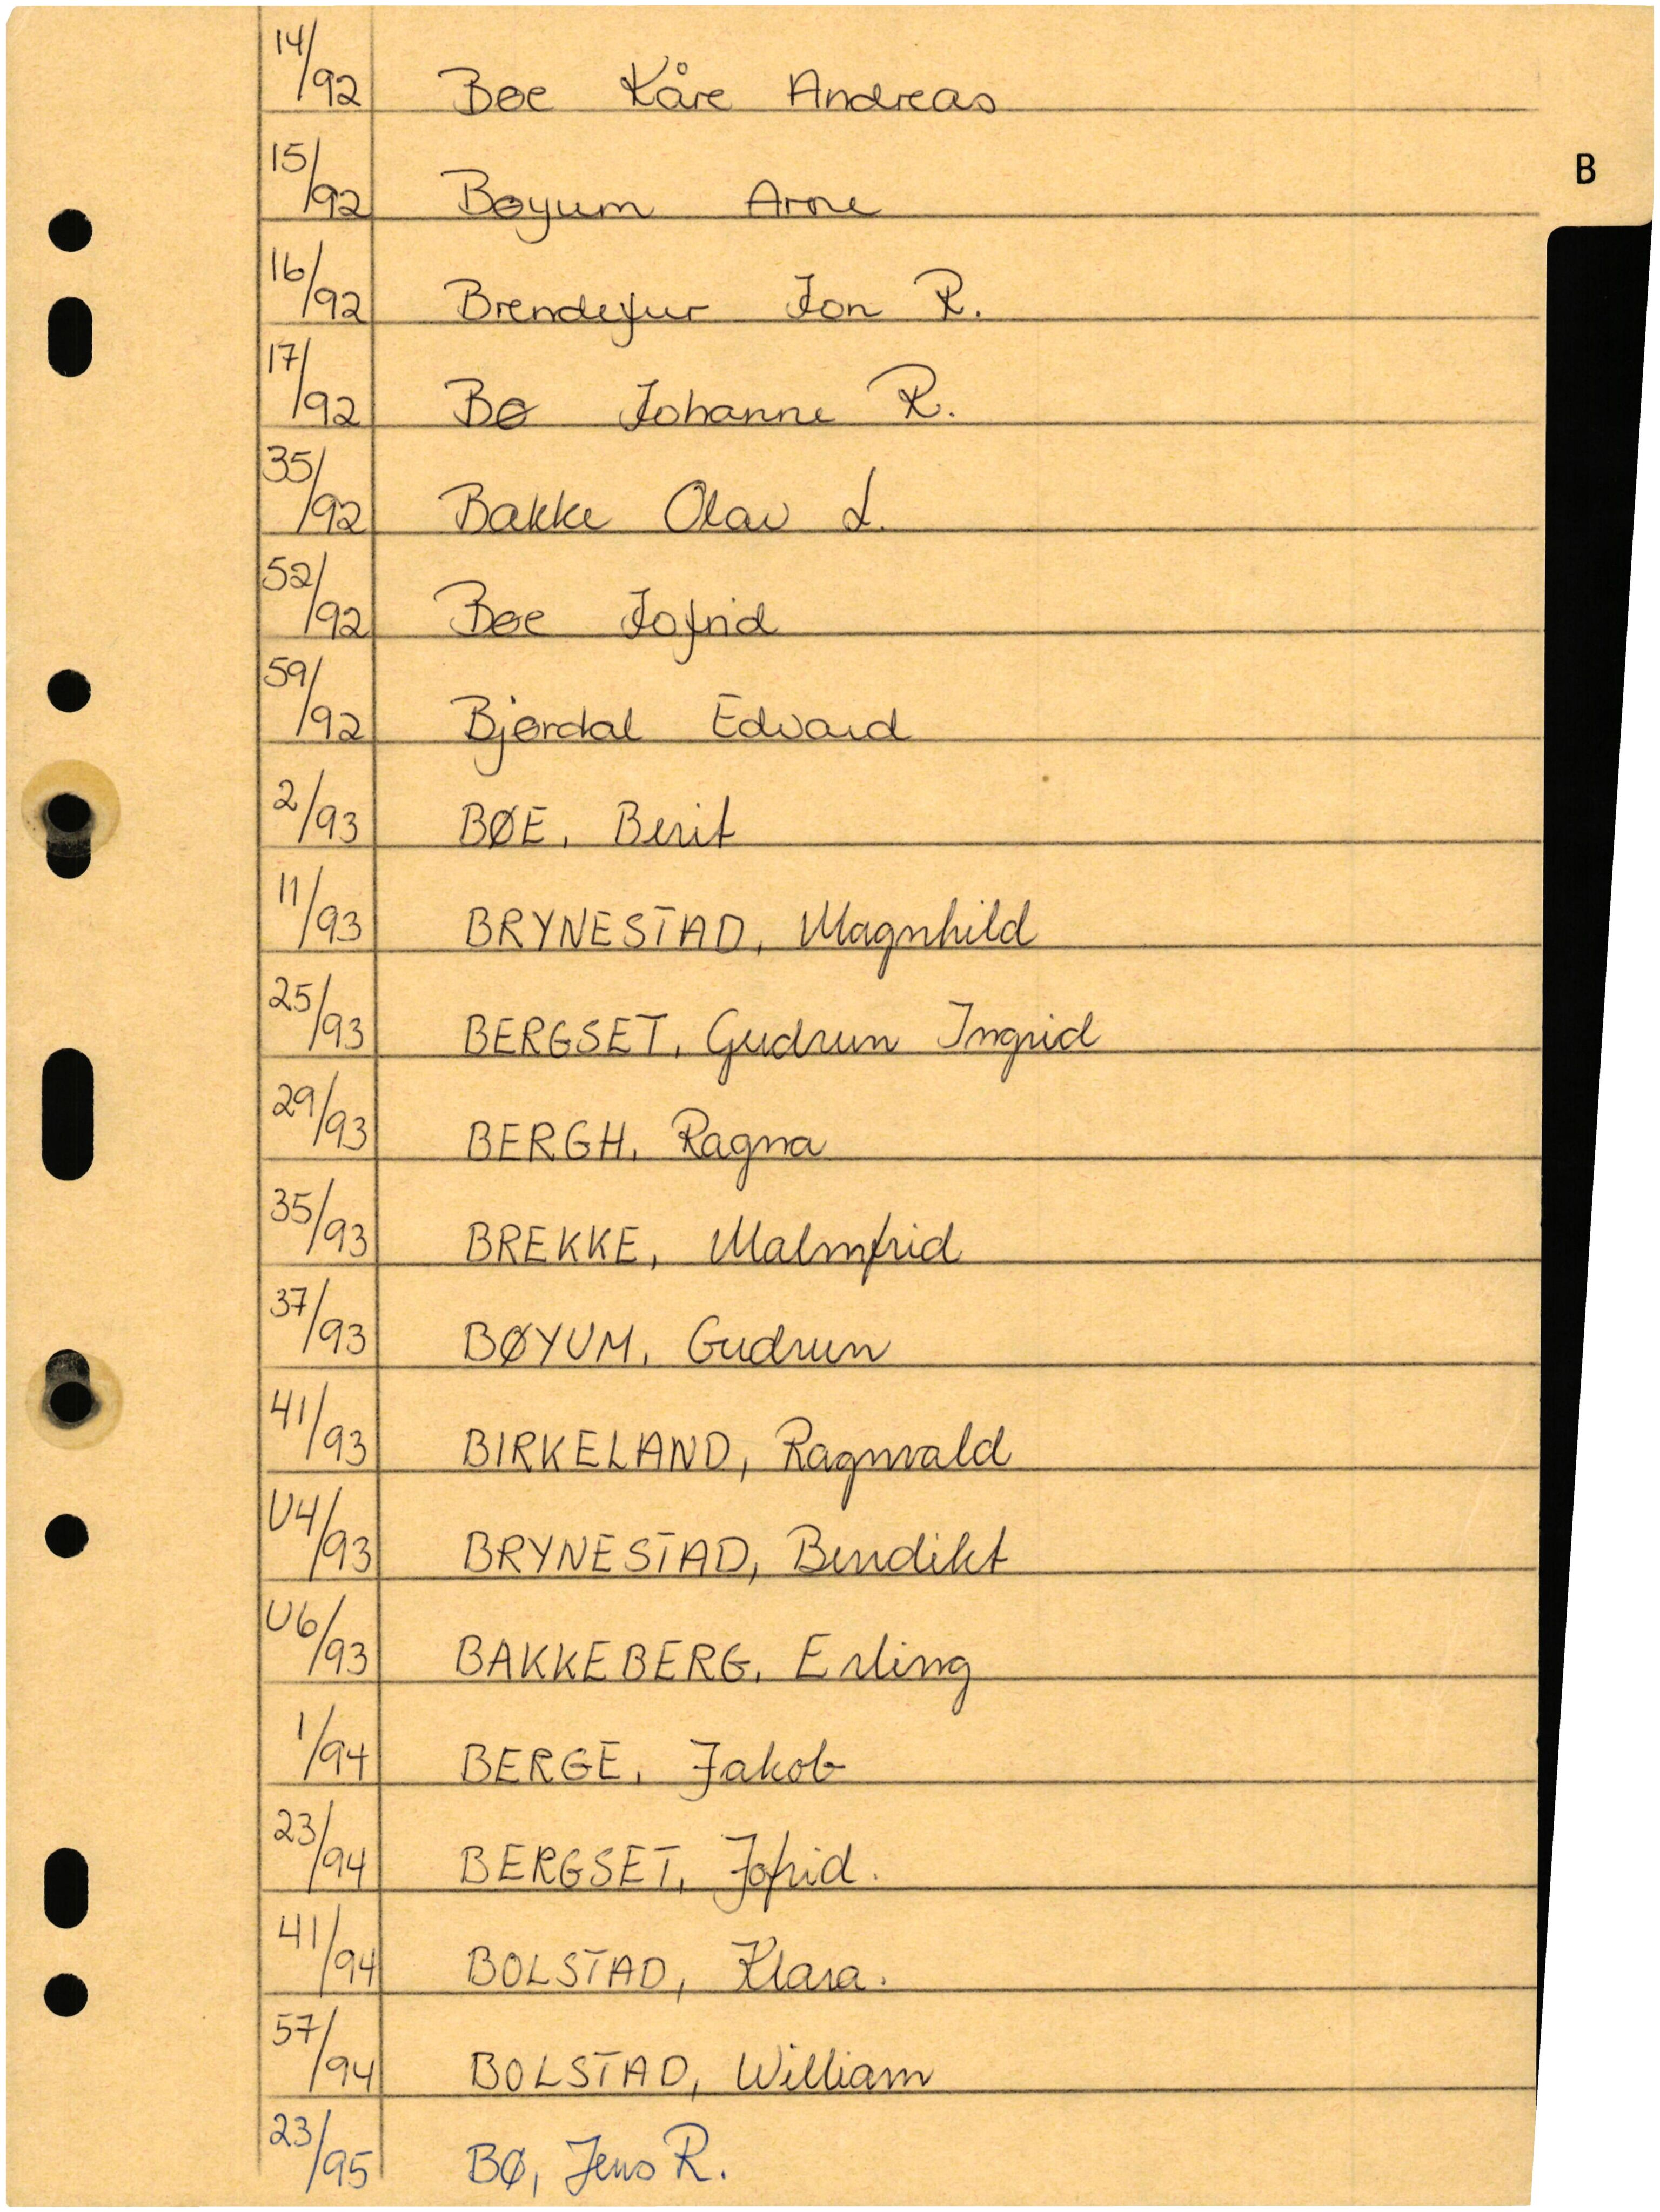 14/92 Bøe Kåre Andreas
B
15/92 Bøyum Arne
16/92 Brendefur Jon R.
17/92 Bø Johanne R.
35/92 Bakke Olav L.
52/92 Bøe Jofrid
59/92 Bjørdal Edvard
2/93 BØE, Berit
11/93 BRYNESTAD, Magnhild
25/93 BERGSET, Gudrun Ingrid
29/93 BERGH, Ragna
35/93 BREKKE, Malmfrid
37/93 BØYUM, Gudrun
41/93 BIRKELAND, Ragnvald
U4/93 BRYNESTAD, Bendikt
U6/93 BAKKEBERG, Erling
1/94 BERGE, Jakob
23/94 BERGSET, Jofrid.
41/94 BOLSTAD, Klara.
57/94 BOLSTAD, William
23/95 BØ, Jens R.